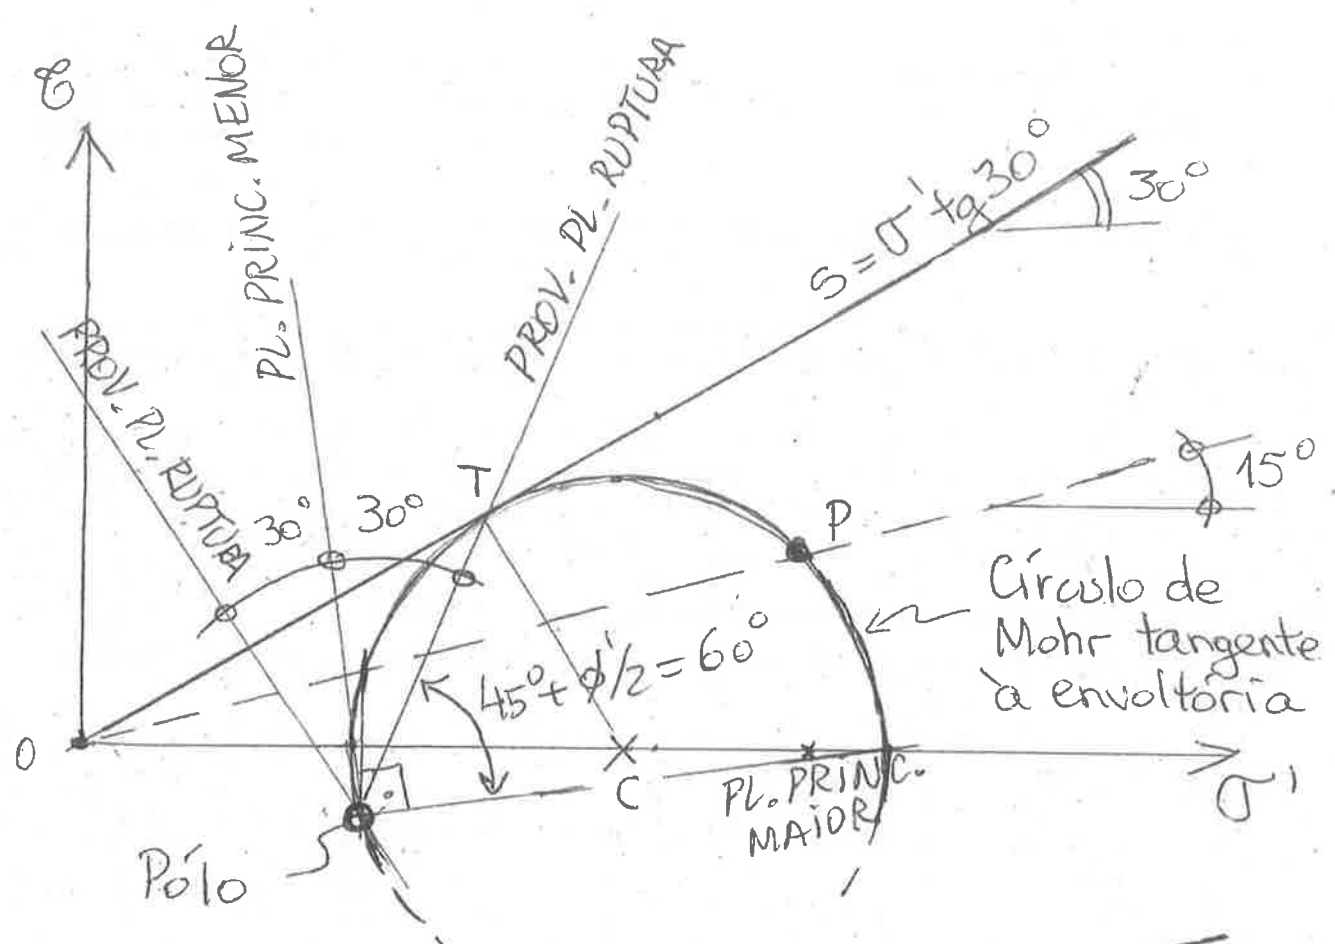 τ
PL. PRINC. MENOR
PROV. PL. RUPTURA
S = σ' tg 30°
30°
PROV. PL. RUPTURA
30°
30°
T
P
15°
Círculo de
Mohr tangente
à envoltória
45° + ϕ'/2 = 60°
O
C
PL. PRINC.
MAIOR
σ'
Pólo